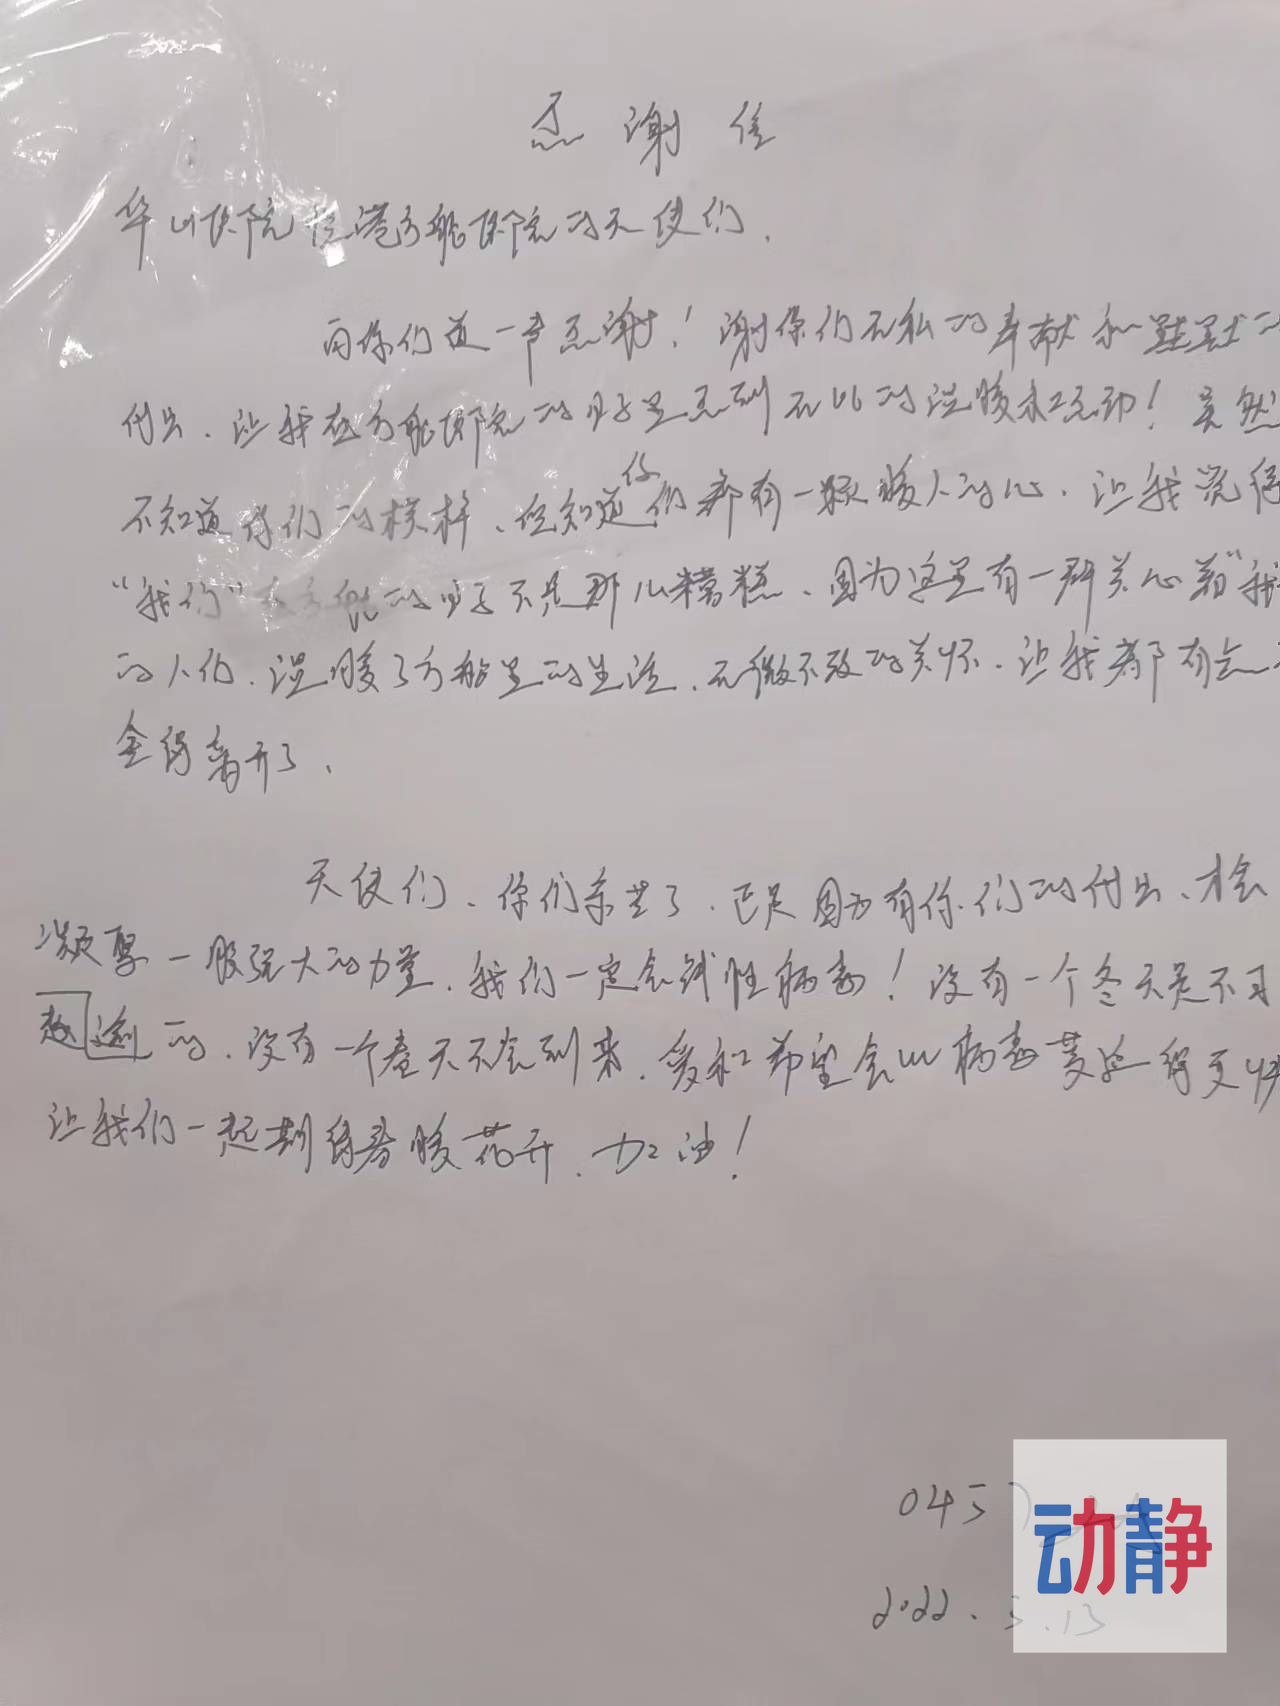 感谢信
华山医院临港方舱医院的天使们、
向你们道一声感谢！谢你们无私的奉献和默默的
付出、让我在方舱医院的日子里感到无比的温暖和感动！虽然
不知道你们的模样、但知道你们都有一颗暖人的心、让我觉得
“我们”在方舱的日子不是那么糟糕、因为这里有一群关心着“我
的人们、温暖了方舱里的生活、无微不致的关怀、让我都有点
舍得离开了、
天使们、你们辛苦了、正是因为有你们的付出、才会
凝聚一股强大的力量、我们一定会战胜病毒！没有一个冬天是不可
逾越的、没有一个春天不会到来、爱和希望会比病毒蔓延得更快
让我们一起期待春暖花开、加油！
045
2022.5.13
动静